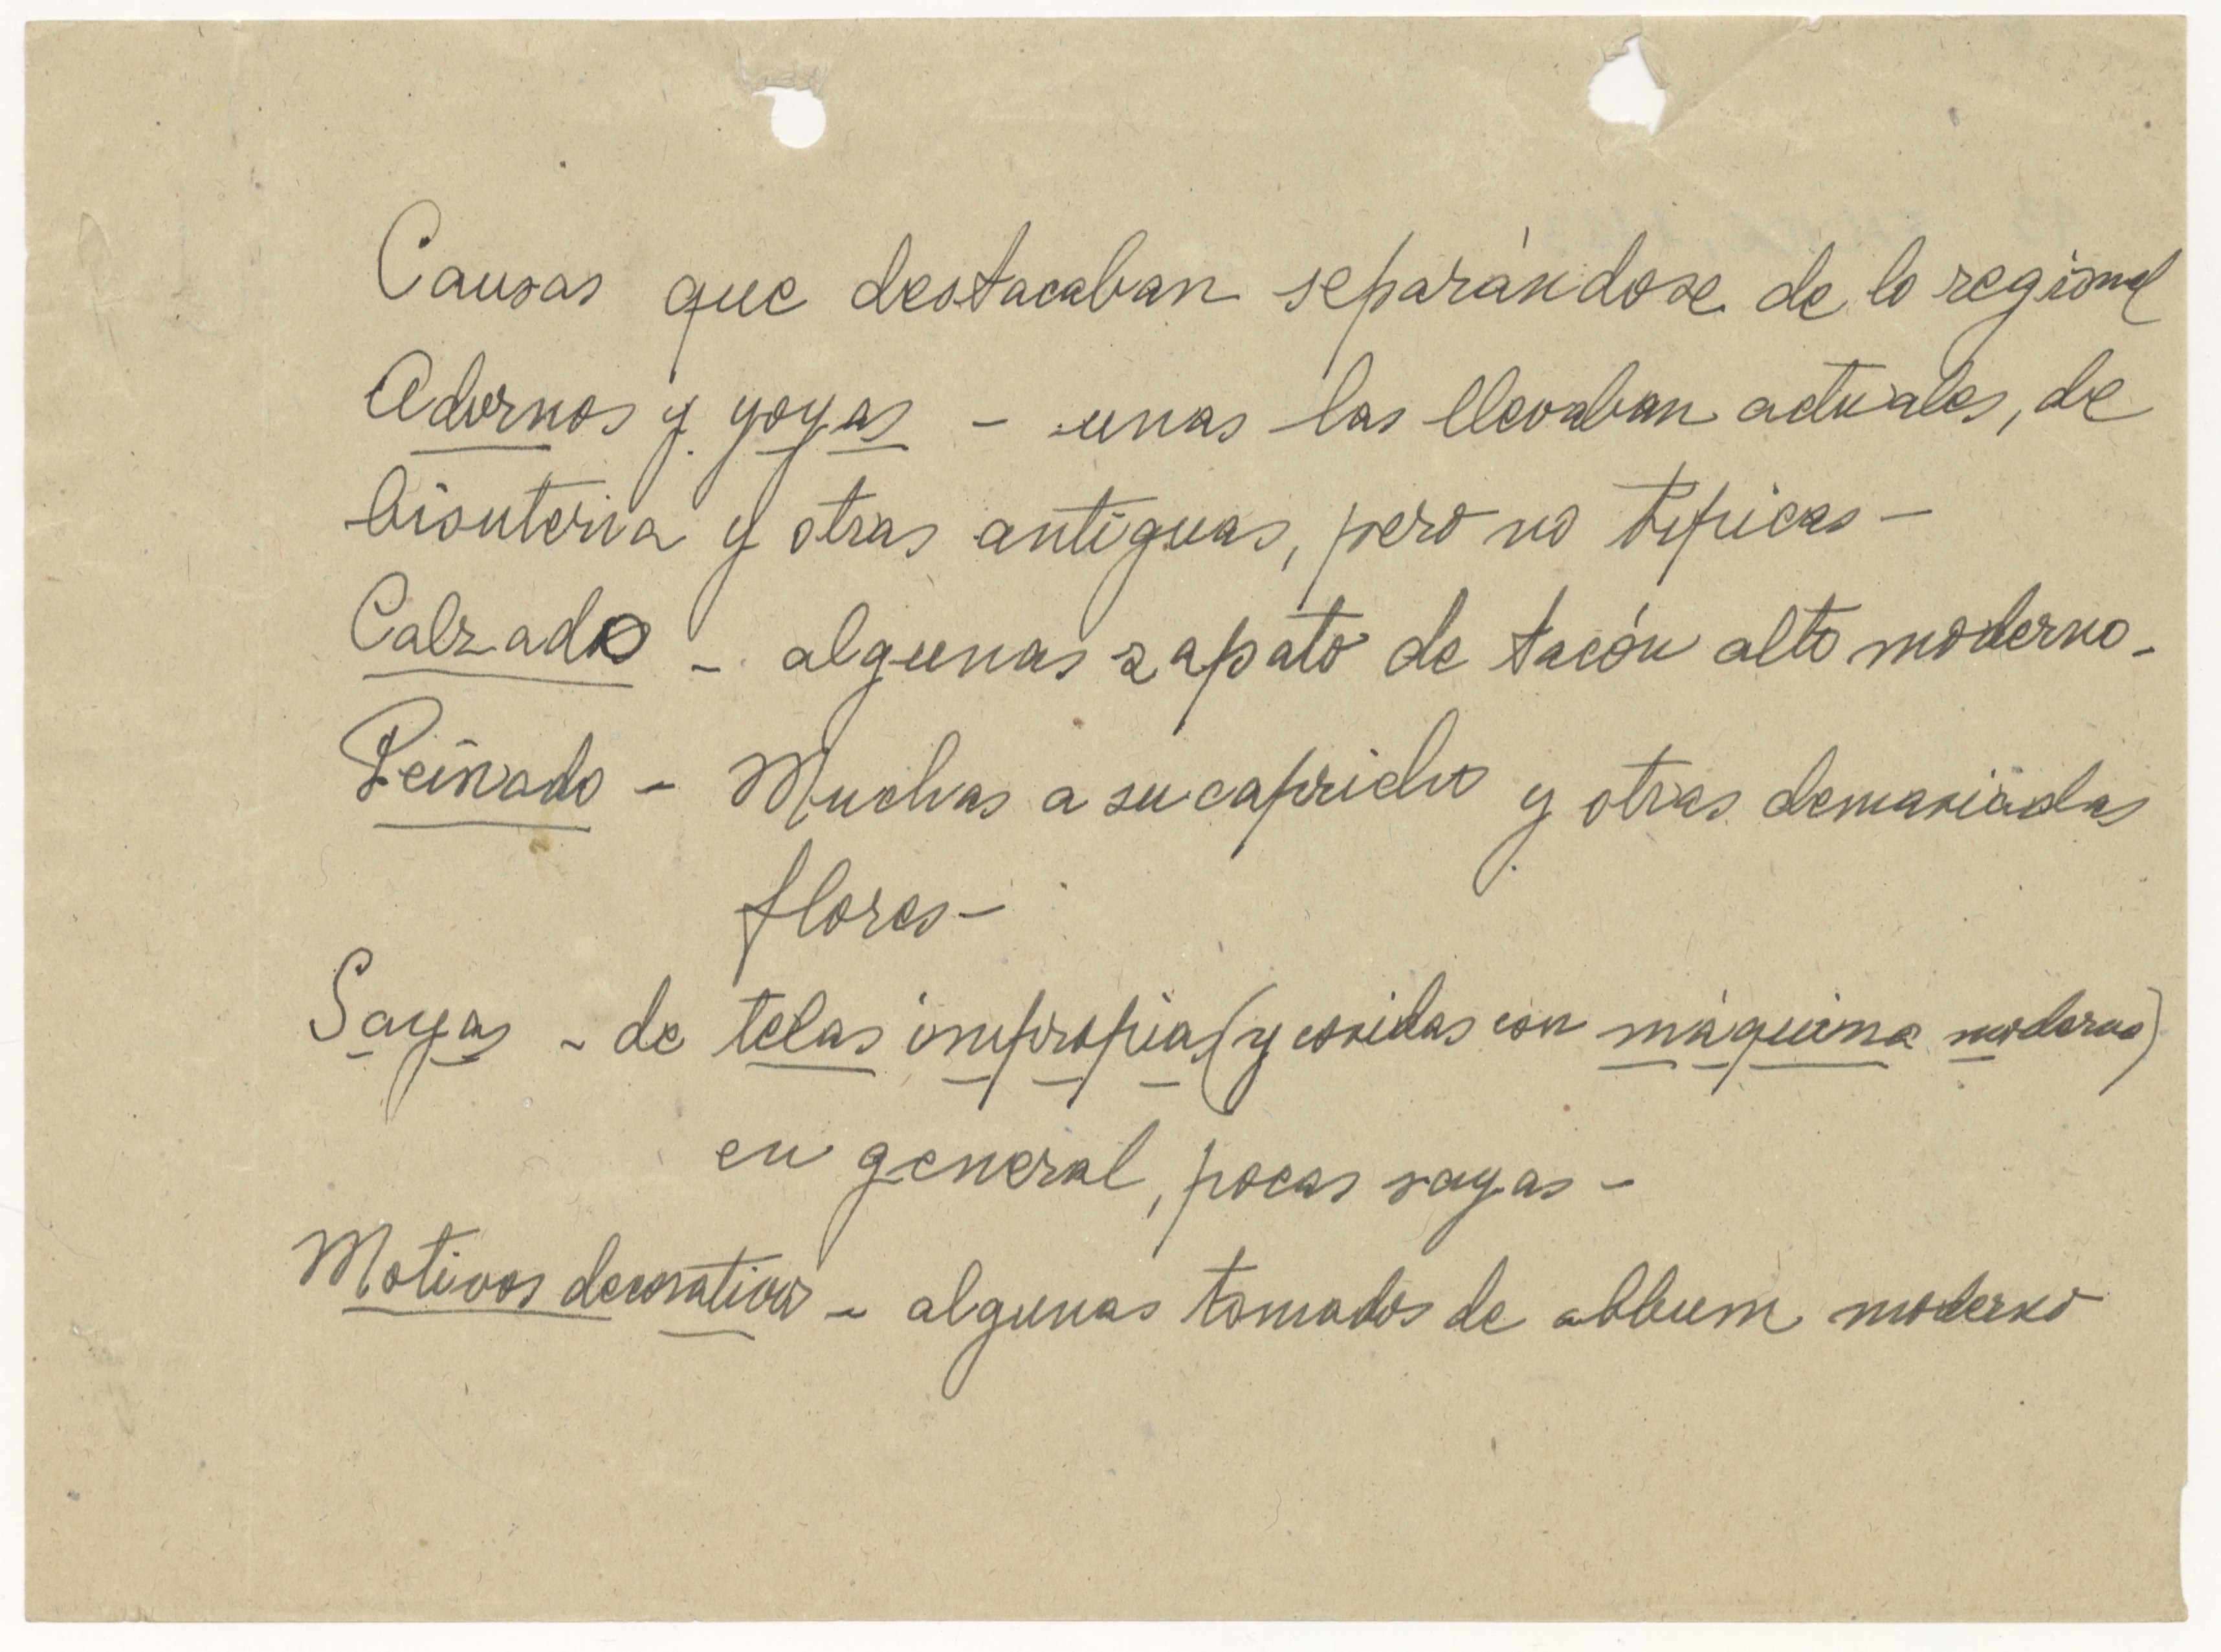 Causas que destacaban separándose de lo regional
Adornos y yoyas - unas las llevaban actuales, de
bisuteria y otras antiguas, pero no tipicas -
Calzado - algunas zapato de tacón alto moderno -
Peinado - Muchas a su capricho y otras demasiadas
flores -
Sayas - de telas impropias (y cosidas con máquina moderna)
en general, pocas sayas -
Motivos decorativos - algunas tomados de album moderno